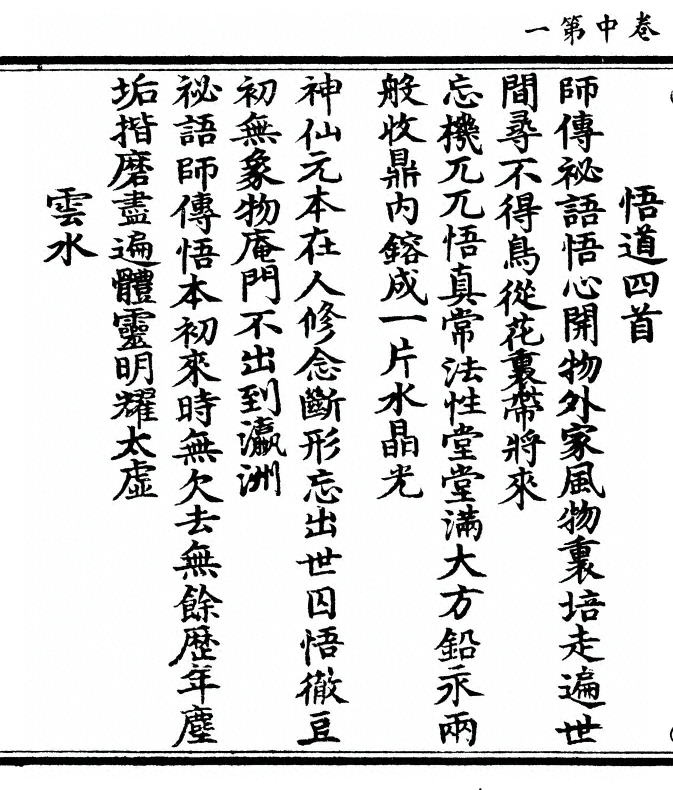 卷中第一
悟道四首
師傳祕語悟心開物外家風物裏培走遍世
間尋不得鳥從花裏帶將來
忘機兀兀悟真常法性堂堂滿大方鉛汞兩
般收鼎内鎔成一片水晶光
神仙元本在人修念斷形忘出世囚悟徹亘
初無象物庵門不出到瀛洲
祕語師傳悟本初來時無欠去無餘歷年塵
垢揩磨盡遍體靈明耀太虛
雲水